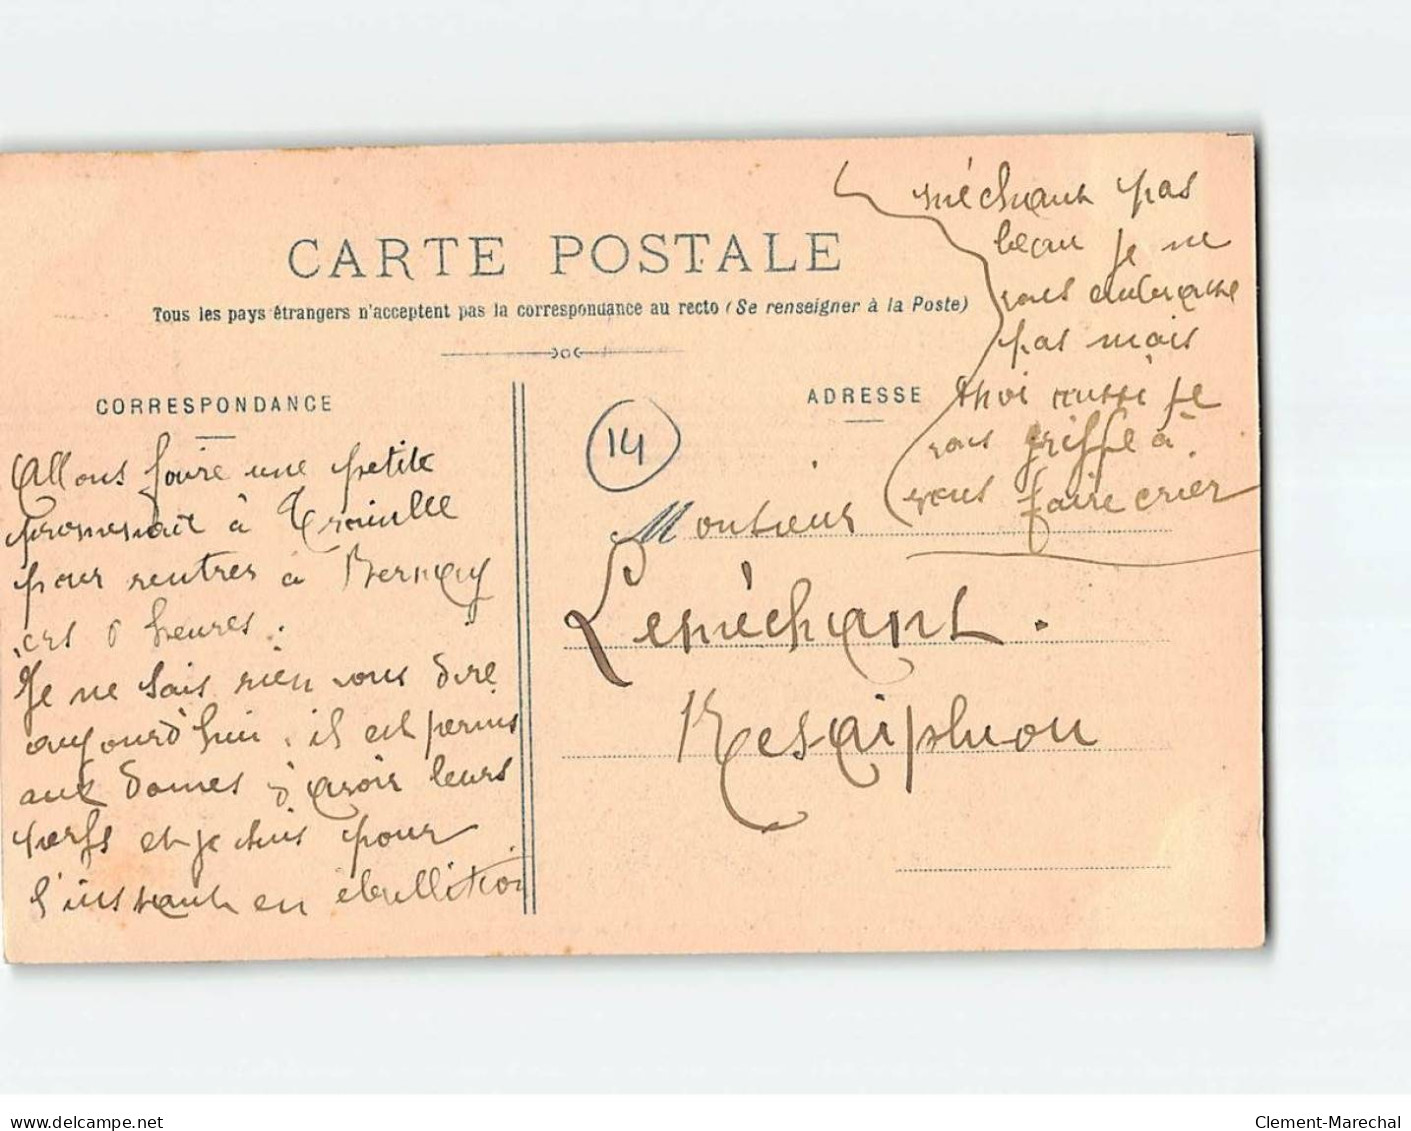 CARTE POSTALE
Tous les pays étrangers n'acceptent pas la correspondance au recto (Se renseigner à la Poste)
CORRESPONDANCE
Allons faire une petite
à
pour rentrer à Bernay
heures.
Je ne sais rien vous dire
aujourd'hui. il est permis
aux dames d'avoir leurs
nerfs et je suis pour
l'instant en ébullition
méchant pas
beau je ne
vous embrasse
pas mais
moi aussi je
vous griffe à
vous faire crier
ADRESSE
14
Monsieur
Leméchant.
delcampe.net
Clement-Marechal